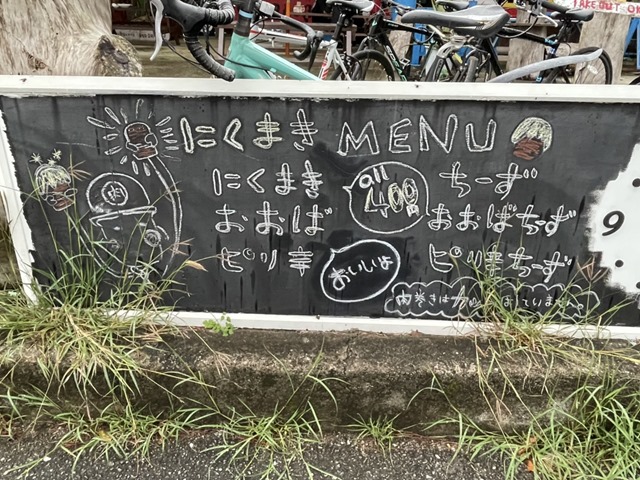 TAKE OUT OK
にくまき MENU
にくまき
おおば
ピリ辛
all
400円
おいしいよ
ちーず
おおばちーず
ピリ辛ちーず
肉
肉巻きは
ていません。
9